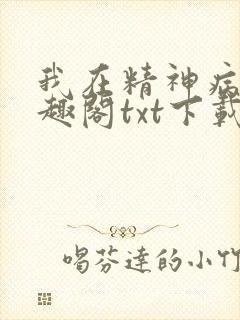 我在精神病
趣阁txt下载
喝芬达的小竹